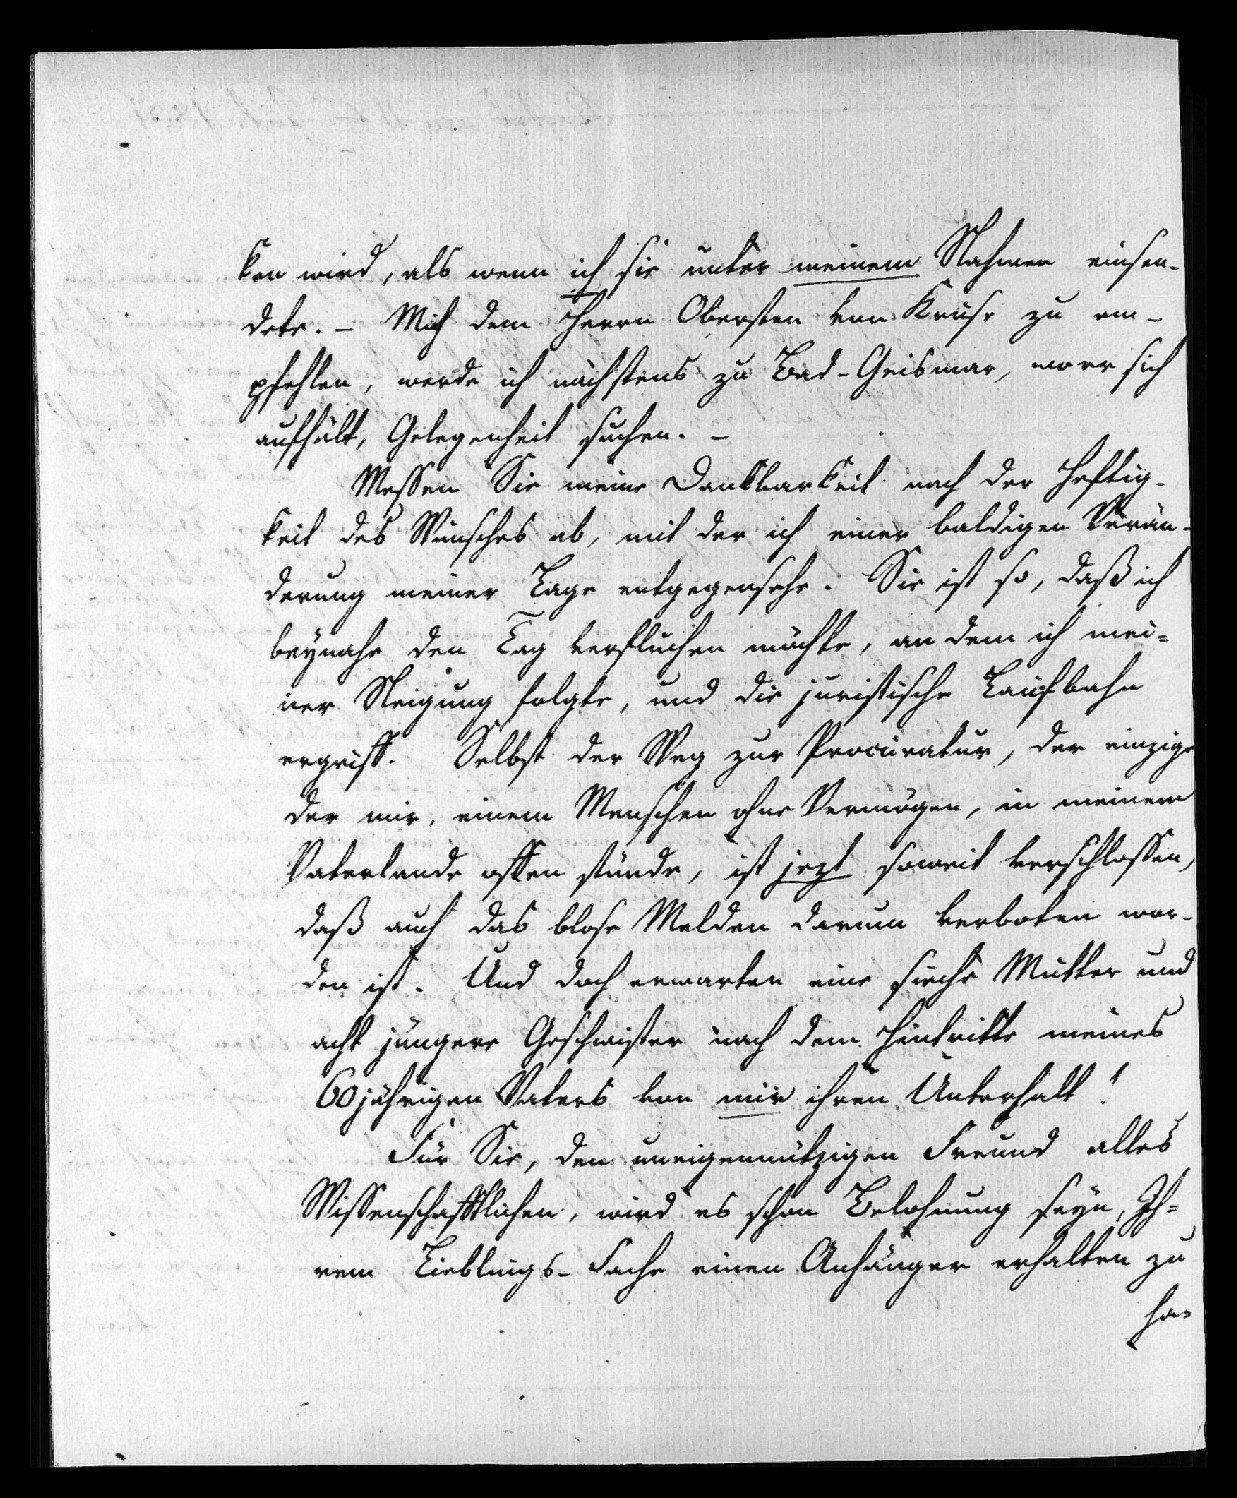 ken wird, als wenn ich sie unter meinem Nahmen einsen-
dete. – Mich dem Herrn Obersten von Kruse zu em-
pfehlen, werde ich nächstens zu Bad-Geismar, wo er sich
aufhält, Gelegenheit suchen. –
Messen Sie meine Dankbarkeit nach der Heftig-
keit des Wunsches ab, mit der ich einer baldigen Verän-
derung meiner Lage entgegensehe. Sie ist so, daß ich
beynahe den Tag verfluchen möchte, an dem ich mei-
ner Neigung folgte, und die juristische Laufbahn
ergriff. Selbst der Weg zur Procuratur, der einzige
der mir, einem Menschen ohne Vermögen, in meinem
Vaterlande offen stünde, ist jezt soweit verschlossen,
daß auch das blose Melden darum verboten wor-
den ist. Und doch erwarten eine sieche Mutter und
acht jüngere Geschwister nach dem Hintritte meines
60jährigen Vaters von mir ihren Unterhalt!
Für Sie, den uneigennützigen Freund alles
Wissenschafftlichen, wird es schon Belohnung seyn, Ih-
rem Lieblings-Fache einen Anhänger erhalten zu
ha-